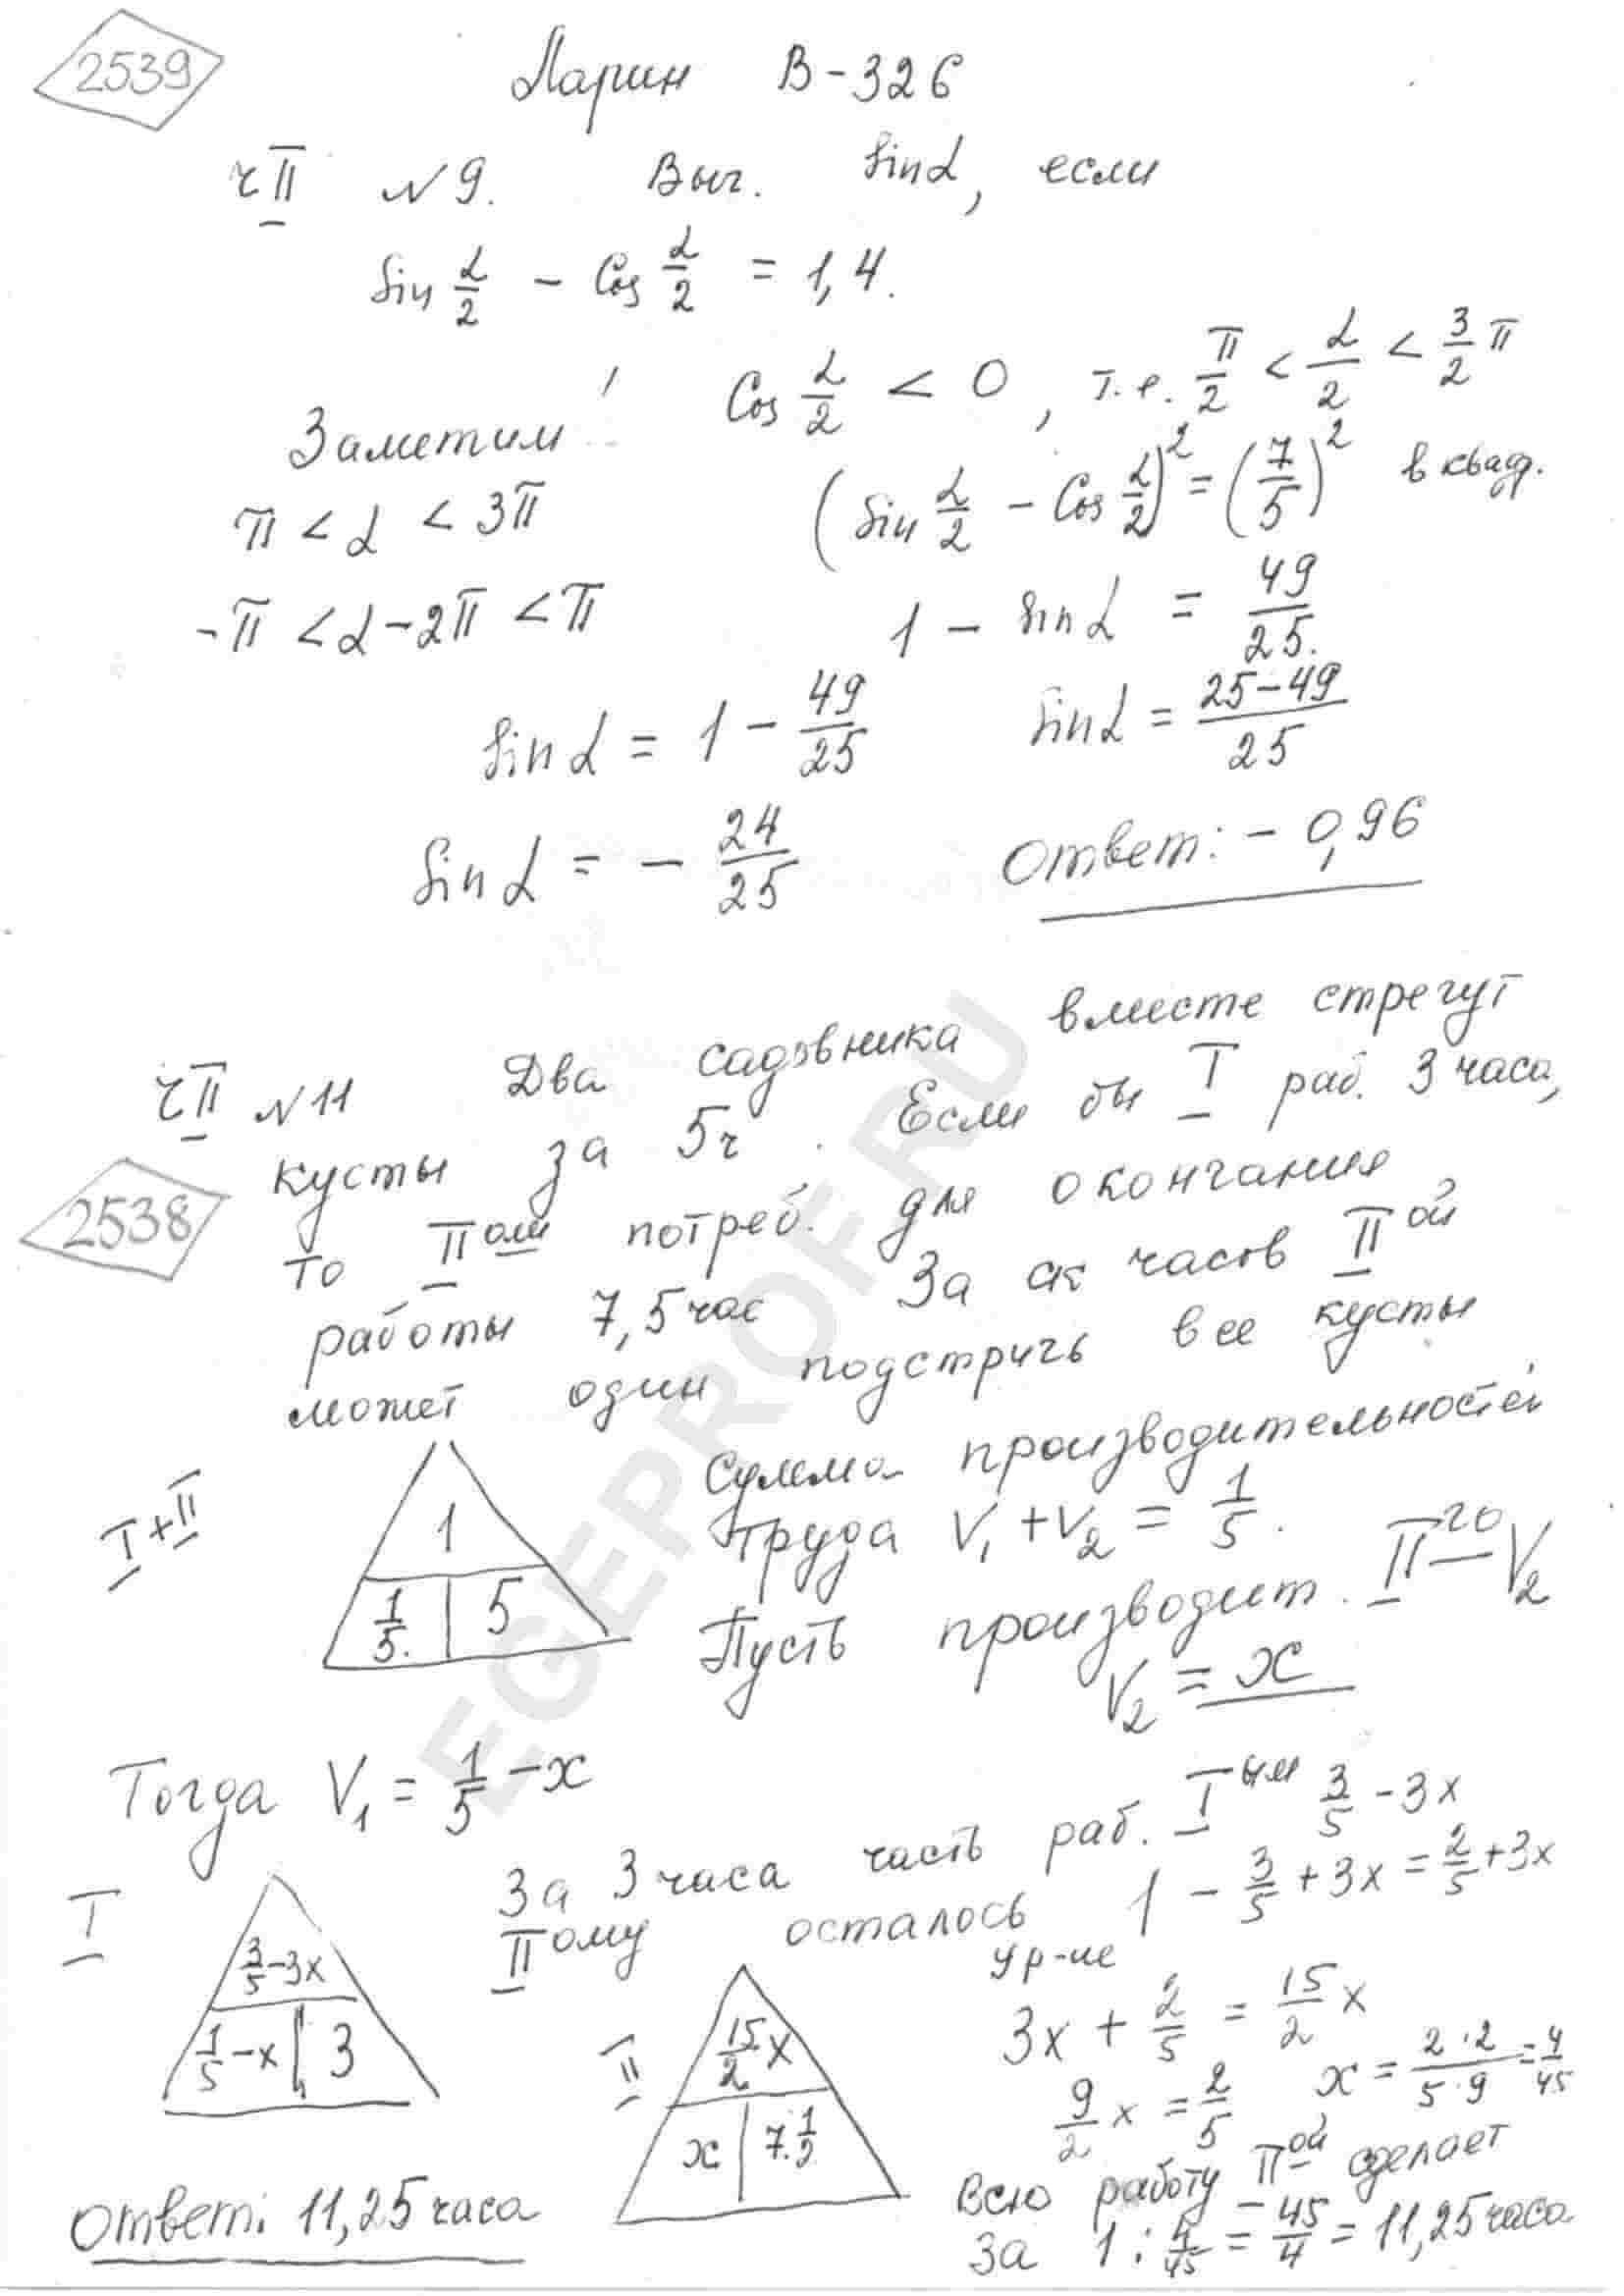 2539
Ларин В-326
чII №9. Выч. sinα, если
sin α/2 - cos α/2 = 1,4.
Заметим! cos α/2 < 0, т.е. π/2 < α/2 < 3/2 π
π < α < 3π (sin α/2 - cos α/2)² = (7/5)² в квадр.
-π < α-2π < π 1 - sinα = 49/25.
sinα = 1 - 49/25 sinα = (25-49)/25
sinα = - 24/25 Ответ: - 0,96
чII №11 Два садовника вместе стрегут
2538
кусты за 5ч. Если бы I раб. 3 часа,
то II ому потреб. для окончания
работы 7,5 час За ск часов II ой
может один подстричь все кусты
I+II
1
1/5. 5
Сумма производительностей
труда V₁+V₂ = 1/5.
Пусть производит. II го V₂
V₂ = x
Тогда V₁ = 1/5 - x
I
3/5-3x
1/5-x 3
За 3 часа часть раб. I ым 3/5 - 3x
II ому осталось 1 - 3/5 + 3x = 2/5 + 3x
ур-ие
3x + 2/5 = 15/2 x
II
15/2 x
x 7.1/2
9/2 x = 2/5 x = 2·2/5·9 = 4/45
Всю работу II ой сделает
за 1 : 4/45 = 45/4 = 11,25 часа
Ответ: 11,25 часа
EGEPROF.RU